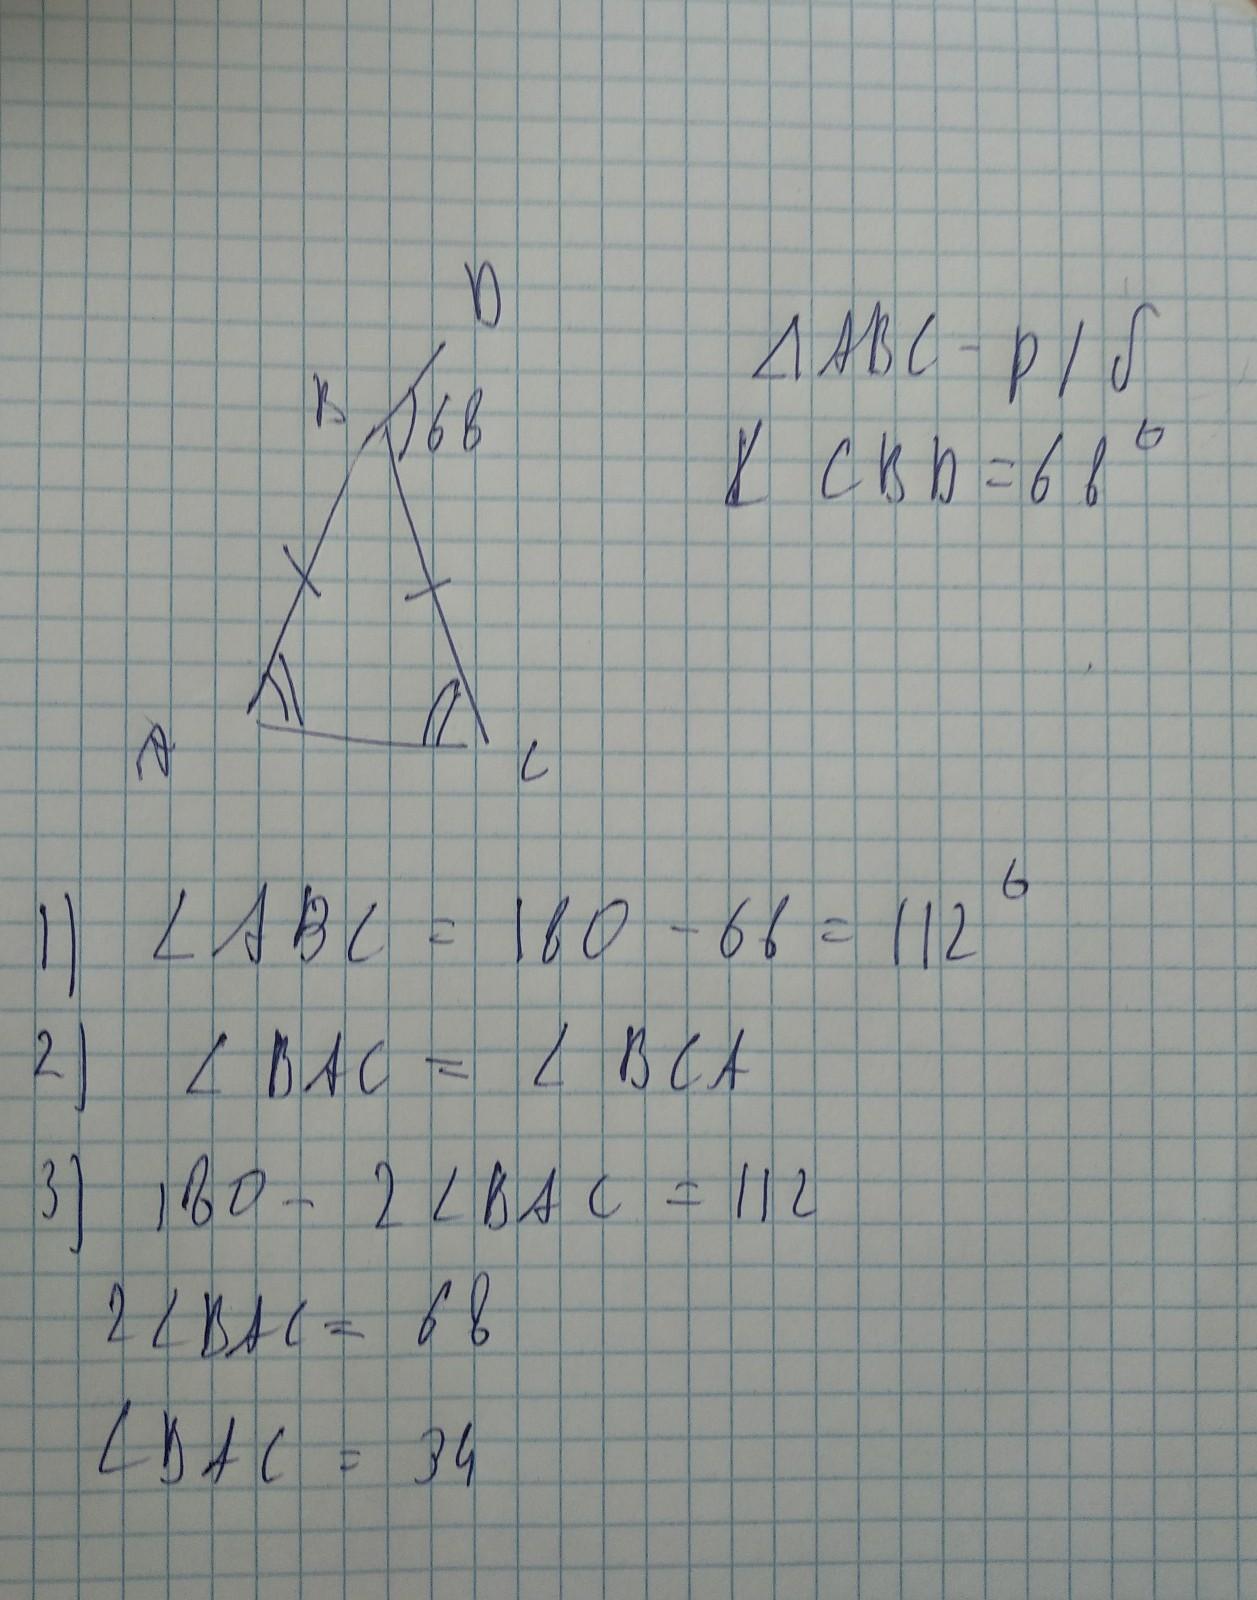 D
B
68
A
C
△ABC - р/б
∠ CBD = 68°
1) ∠ABC = 180 - 68 = 112°
2) ∠BAC = ∠BCA
3) 180 - 2∠BAC = 112
2∠BAC = 68
∠BAC = 34